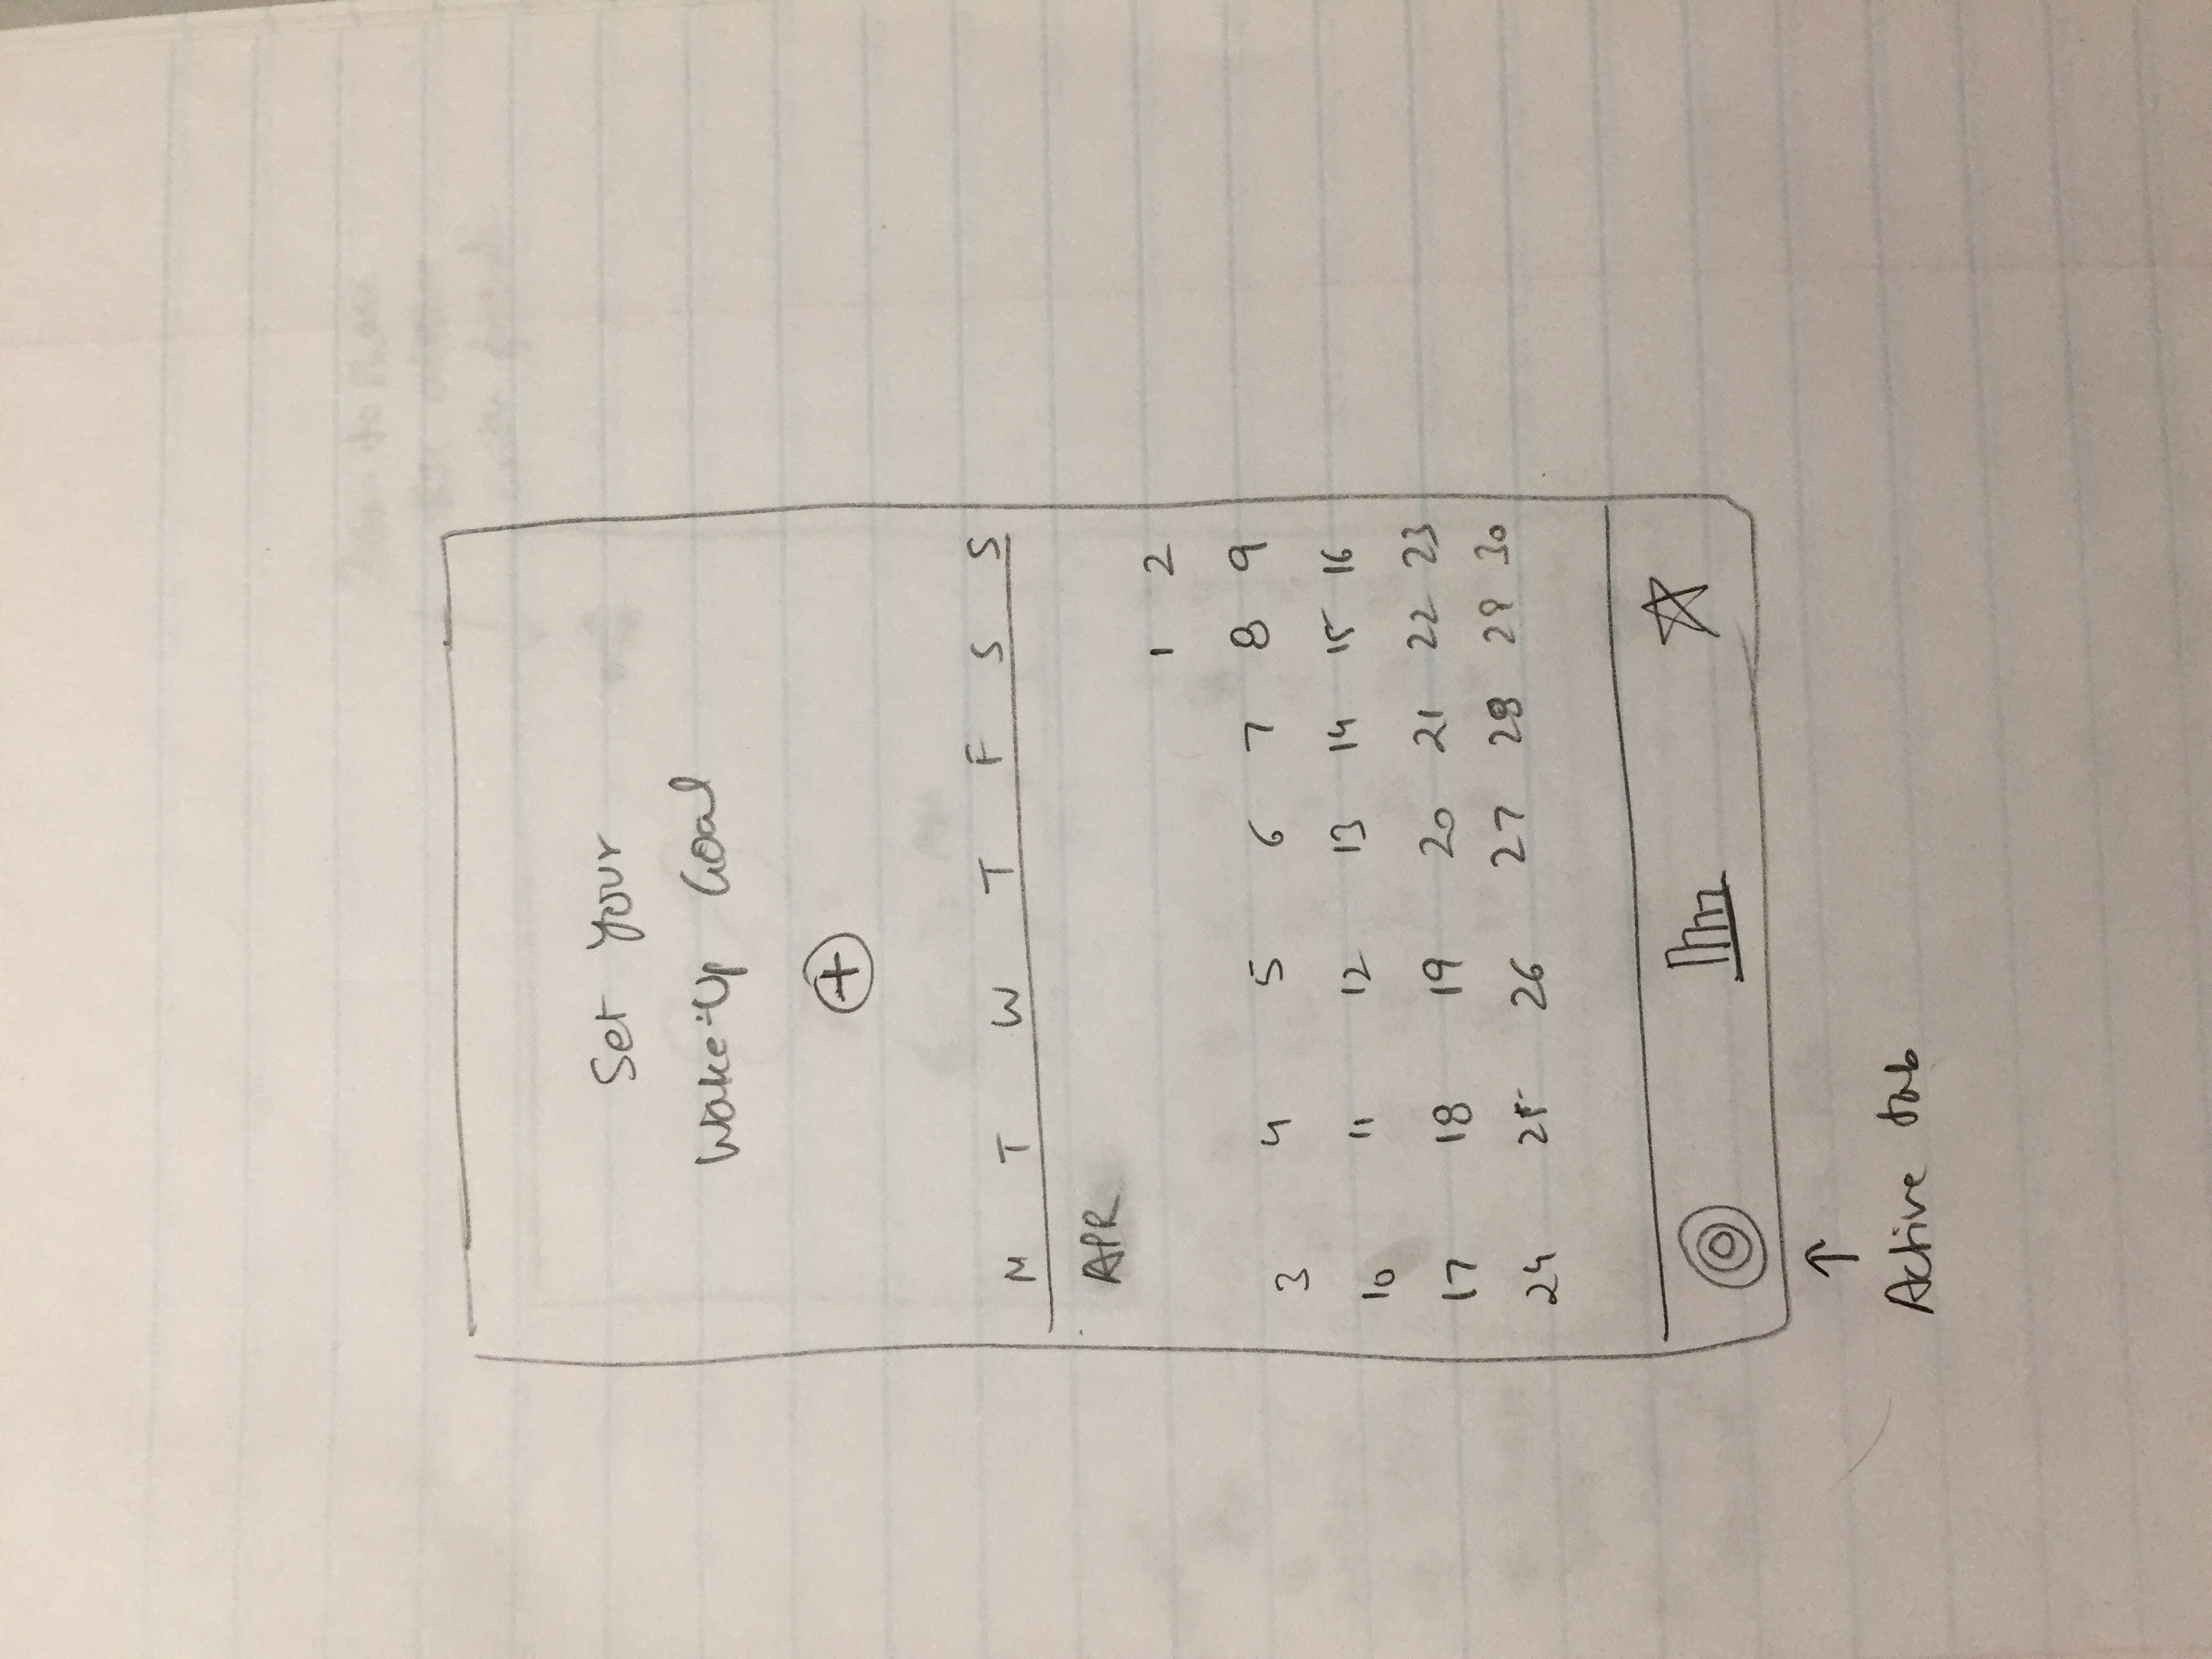 Set Your
Wake-Up Goal
M T W T F S S
APR
1 2
3 4 5 6 7 8 9
10 11 12 13 14 15 16
17 18 19 20 21 22 23
24 25 26 27 28 29 30
Active tab